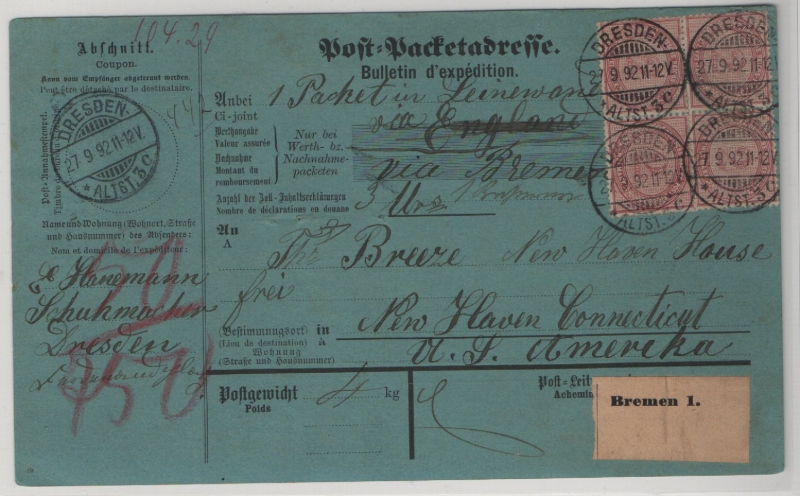 104.29
Abschnitt.
Coupon.
Kann vom Empfänger abgetrennt werden.
Peut être détaché par le destinataire.
DRESDEN
27.9.92 11-12V.
* ALTST. 3 c
Post-Annahmestempel.
Name und Wohnung (Wohnort, Straße
und Hausnummer) des Absenders:
Nom et domicile de l'expéditeur:
Hanemann
Schuhmacher
Dresden
Post-Packetadresse.
Bulletin d'expédition.
Anbei 1 Packet in Leinewand
Ci-joint
via England
Werthangabe
Valeur assurée
Nachnahme
Montant du
remboursement
Nur bei
Werth- bz.
Nachnahme-
packeten
via Bremen
Anzahl der Zoll-Inhaltserklärungen 3
Nombre de déclarations en douane
An Mrs
A
Breeze New Haven House
frei
(Bestimmungsort) in New Haven Connecticut
(Lieu de destination) à
Wohnung
(Straße und Hausnummer)
U. S. Amerika
Postgewicht 4 kg
Poids
Post-Leit
Achemin
Bremen 1.
DRESDEN
27.9.92 11-12V.
* ALTST. 3 c
DRESDEN
27.9.92 11-12V.
* ALTST. 3 c
DRESDEN
9.92 11-12V.
ALTST. 3 c
DRESDEN
7.9.92 11-12V.
* ALTST. 3 c